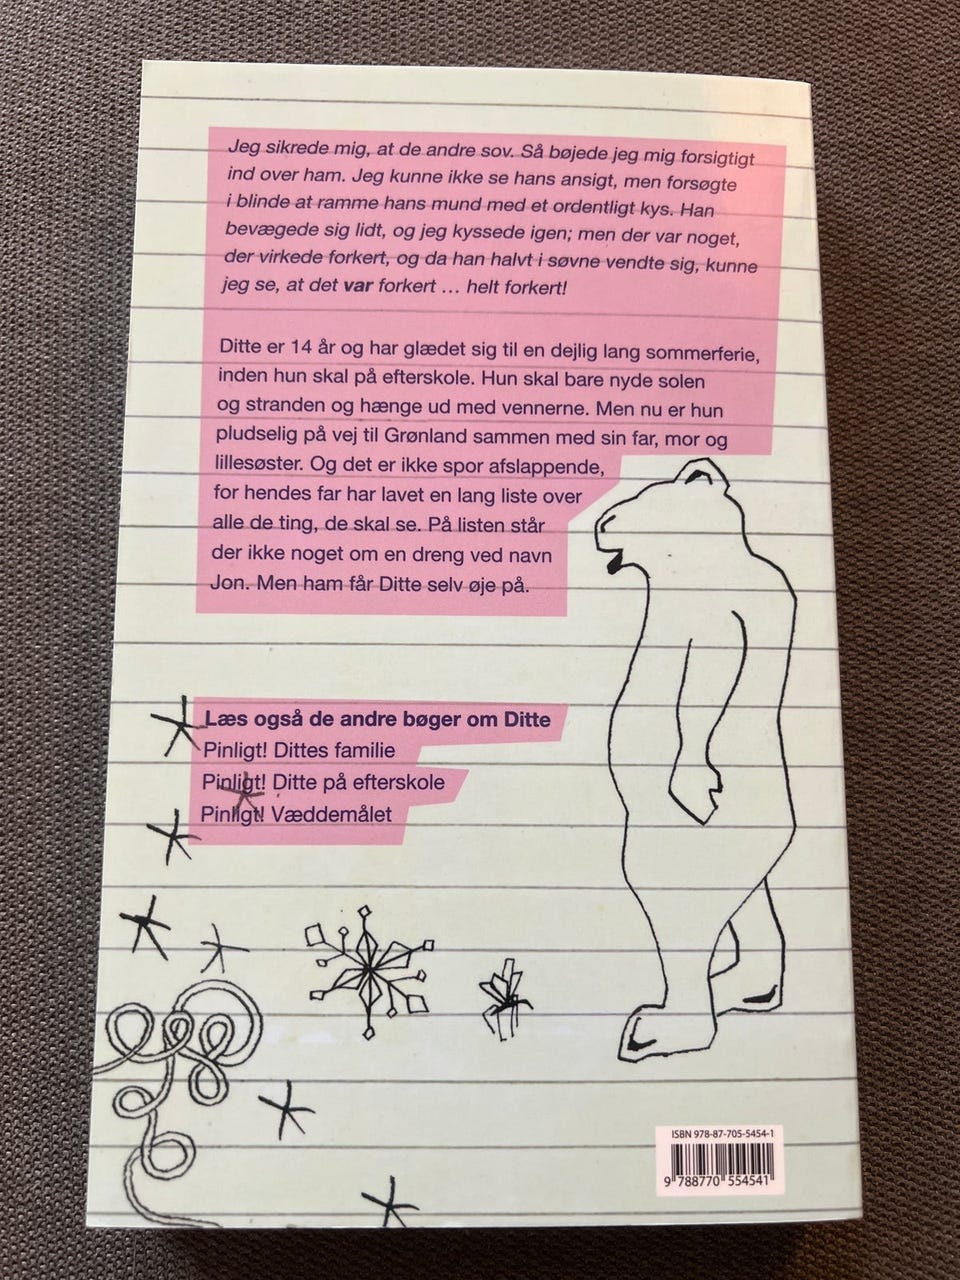 Jeg sikrede mig, at de andre sov. Så bøjede jeg mig forsigtigt
ind over ham. Jeg kunne ikke se hans ansigt, men forsøgte
i blinde at ramme hans mund med et ordentligt kys. Han
bevægede sig lidt, og jeg kyssede igen; men der var noget,
der virkede forkert, og da han halvt i søvne vendte sig, kunne
jeg se, at det var forkert … helt forkert!
Ditte er 14 år og har glædet sig til en dejlig lang sommerferie,
inden hun skal på efterskole. Hun skal bare nyde solen
og stranden og hænge ud med vennerne. Men nu er hun
pludselig på vej til Grønland sammen med sin far, mor og
lillesøster. Og det er ikke spor afslappende,
for hendes far har lavet en lang liste over
alle de ting, de skal se. På listen står
der ikke noget om en dreng ved navn
Jon. Men ham får Ditte selv øje på.
Læs også de andre bøger om Ditte
Pinligt! Dittes familie
Pinligt! Ditte på efterskole
Pinligt! Væddemålet
ISBN 978-87-705-5454-1
9 788770 554541